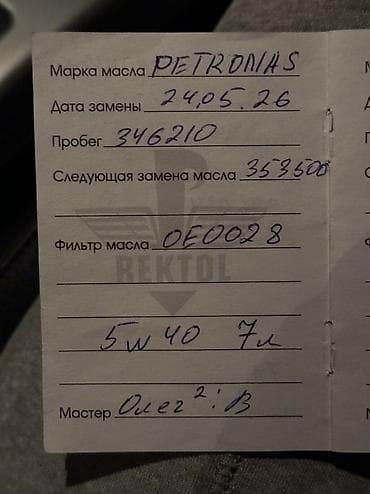 Марка масла PETRONAS
Дата замены 24.05.26
Пробег 346210
Следующая замена масла 353500
Фильтр масла OE0028
REKTOL
5w40 7л
Мастер Олег²:В